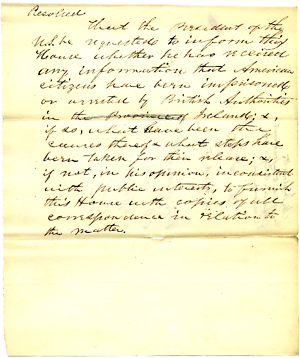 Resolved
That the President of the
U.S. be requested to inform this
House whether he has received
any information that American
citizens have been imprisoned
or arrested by British Authorities
in the Province of Ireland; &,
if so, what have been the
causes thereof & what steps have
been taken for their release; &,
if not, in his opinion, inconsistent
with public interests, to furnish
this House with copies of all
correspondence in relation to
the matter.